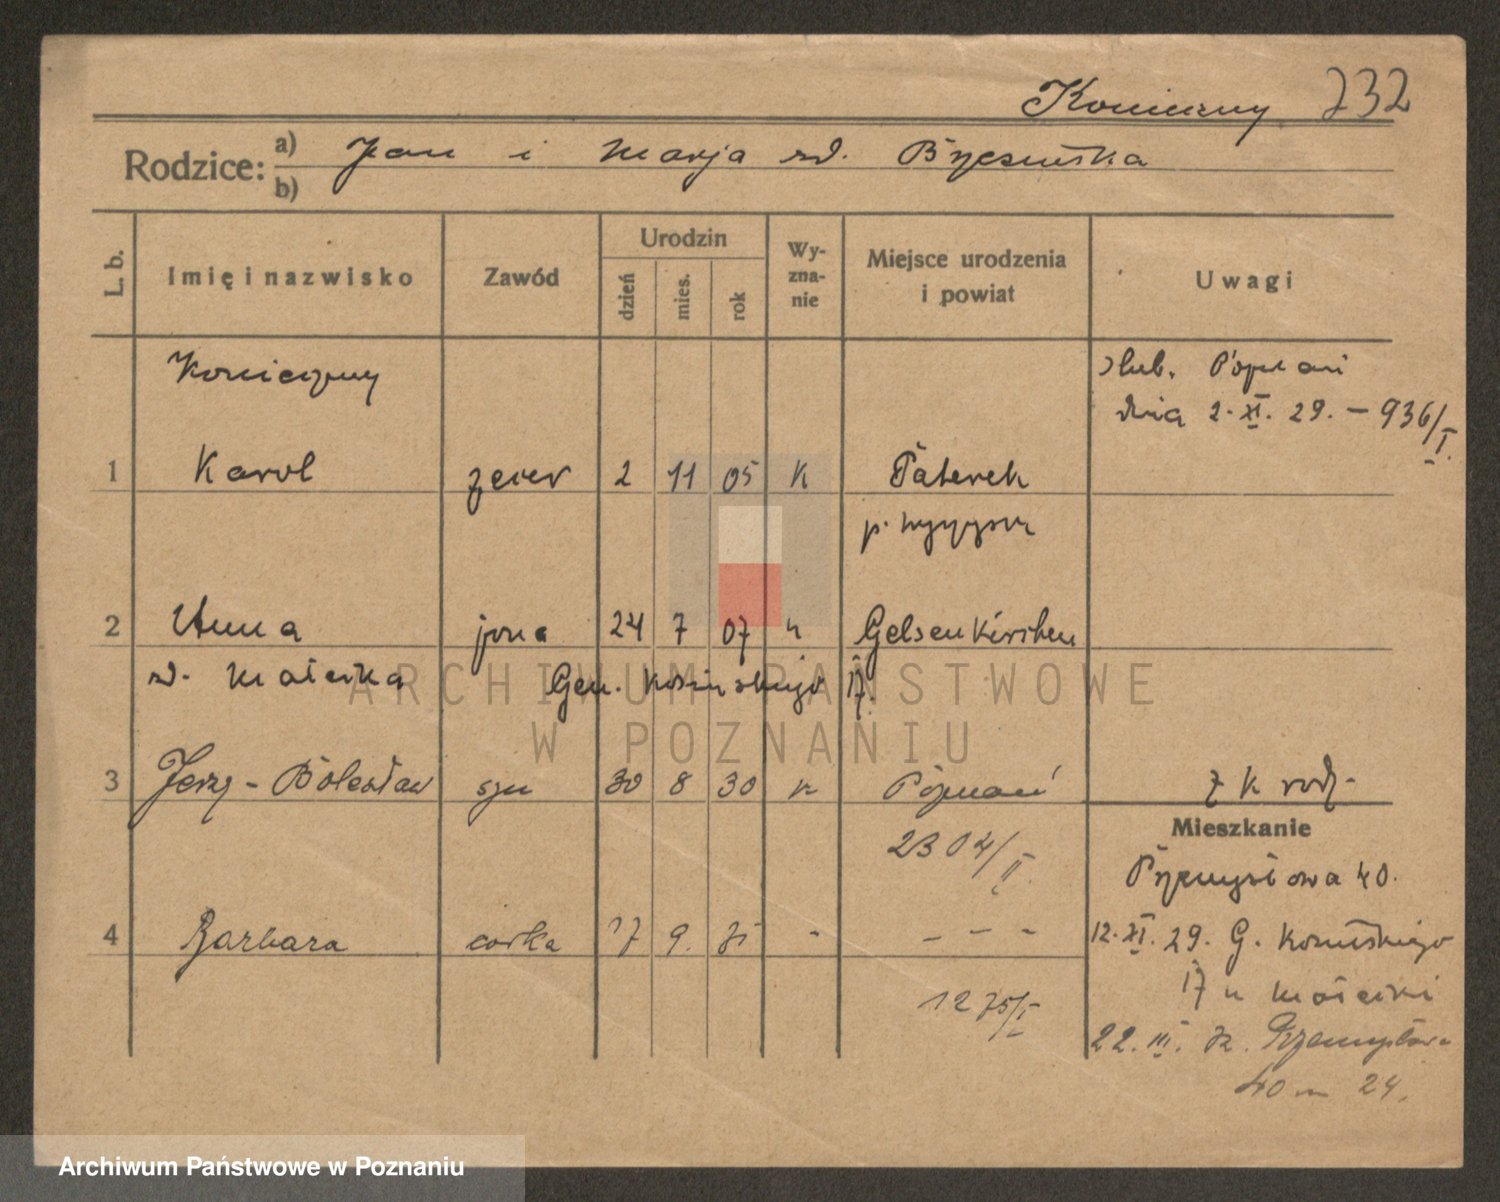 Konieczny 732
Rodzice: a) Jan i Marja zd. Brzezińska
b)
L. b. Imię i nazwisko Zawód Urodzin dzień mies. rok Wy-zna-nie Miejsce urodzenia i powiat Uwagi
Konieczny
ślub. Poznań
dnia 2. XI. 29. – 936/I.
1 Karol zecer 2 11 05 K Paterek
p. Wyrzysk
2 Anna żona 24 7 07 k Gelsenkirchen
zd. Małecka Gen. Kosińskiego 17.
3 Jerzy - Bolesław syn 30 8 30 k Poznań
z k rodz.
2304/II.
Mieszkanie
Przemysłowa 40.
4 Barbara córka 17 9. 35 - - - -
12. XI. 29. G. Kosińskiego
17 u Małecki
1275/I
22. III. 32. Przemysłowa
40 m 24.
ARCHIWUM PAŃSTWOWE
W POZNANIU
Archiwum Państwowe w Poznaniu